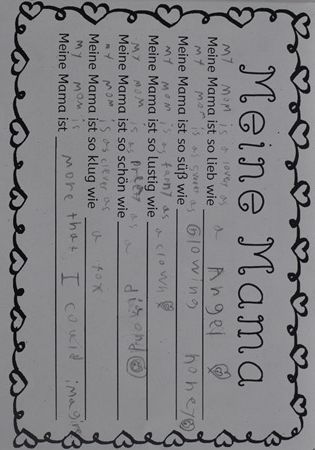 Meine Mama
my mom is a lover as
Meine Mama ist so lieb wie a Angel
my mom is as as
Meine Mama ist so süß wie Glowing honey
my mom is as as
Meine Mama ist so lustig wie a clown
my mom is as as
Meine Mama ist so schön wie a
my mom is as clever as
Meine Mama ist so klug wie a fox
my mom is
Meine Mama ist more that I could imagine